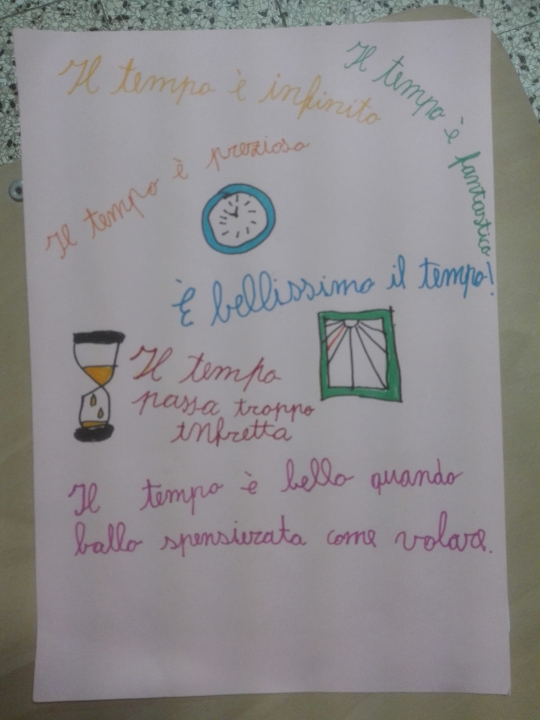 Il tempo è infinito
Il tempo è fantastico
Il tempo è prezioso
È bellissimo il tempo!
Il tempo
passa troppo
infretta
Il tempo è bello quando
ballo spensierata come volare.